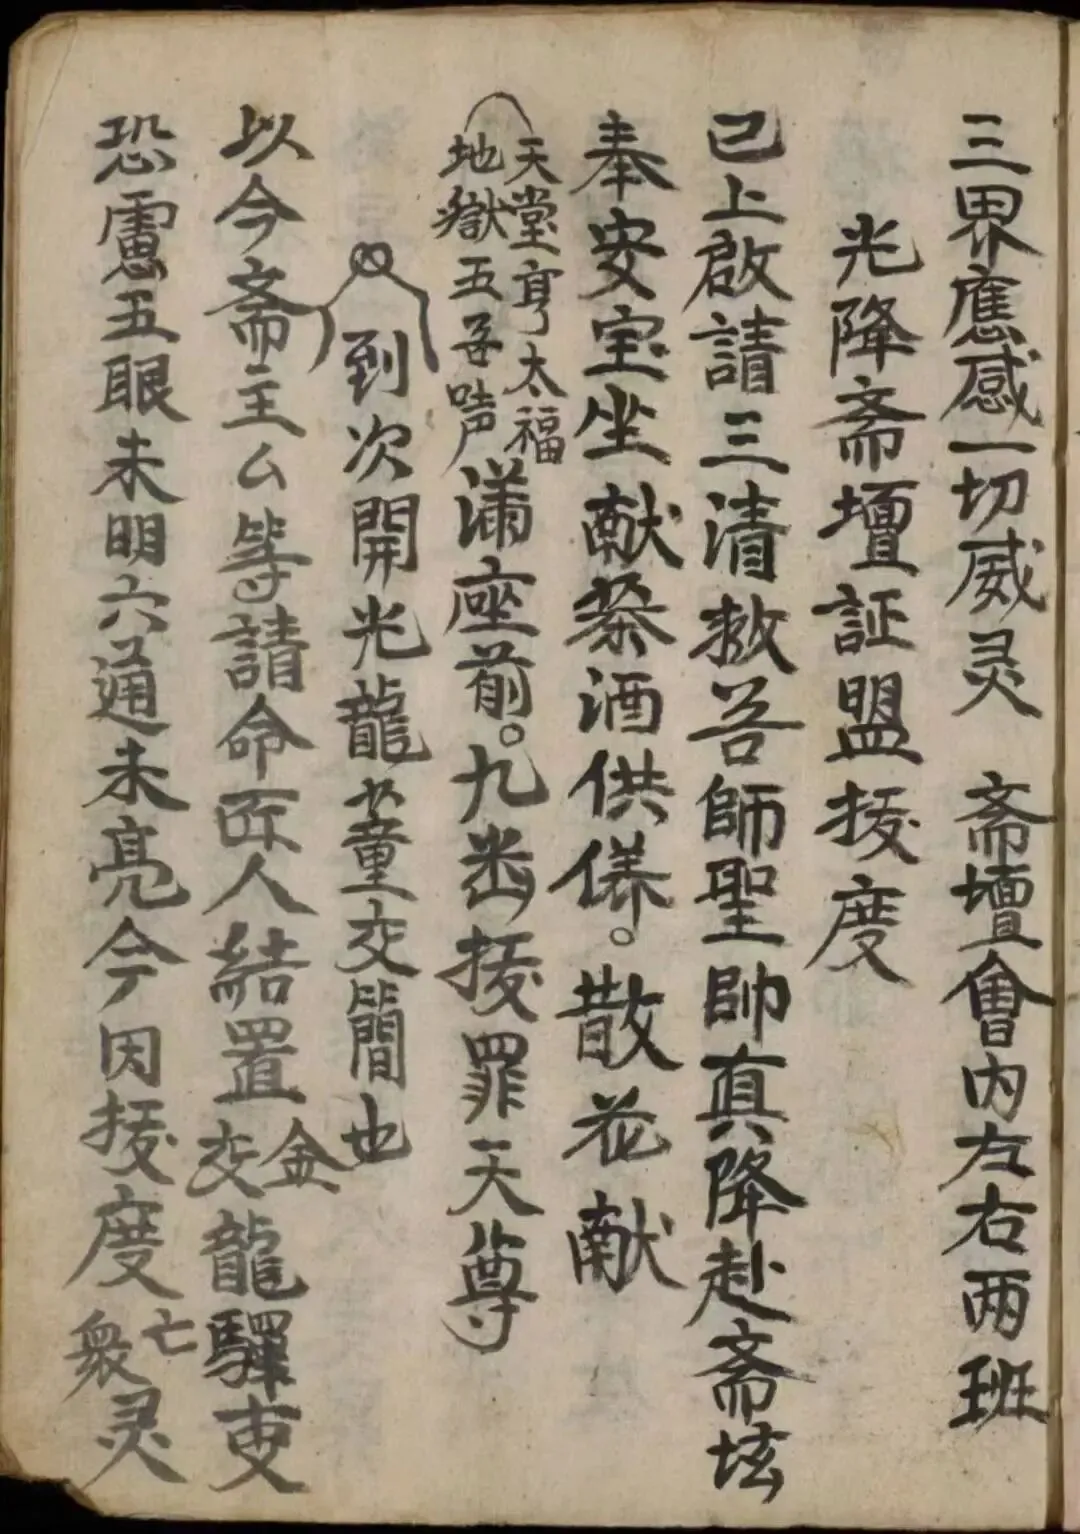 三界應感一切威灵　斋壇會內左右两班
光降斋壇証盟拔度
已上啟請三清救苦師聖帥真降赴斋坛
奉安宝坐献茶酒供養。散花献
天堂享太福
地獄五苦声
满座前。九幽拔罪天尊
到次開光龍童交簡也
以今斋主厶等請命匠人結置金交龍驛吏
恐慮五眼未明六通未亮今因拔度亡衆灵